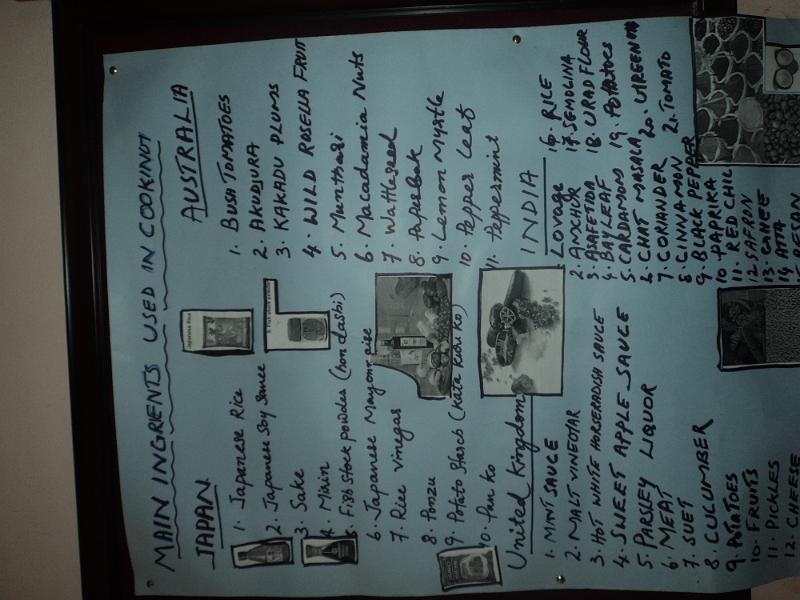 MAIN INGRENTS USED IN COOKING
JAPAN
1. Japanese Rice
2. Japanese Soy Sauce
3. Sake
4. Mirin
5. Fish Stock powder (hon dashi)
6. Japanese Mayonnaise
7. Rice vinegar
8. Ponzu
9. Potato Starch (Kata kuri ko)
10. Pan ko
AUSTRALIA
1. BUSH TOMATOES
2. AKUDJURA
3. KAKADU PLUMS
4. WILD ROSELLA FRUIT
5. Munthari
6. Macadamia Nuts
7. Wattleseed
8. Paperbak
9. Lemon Myrtle
10. Pepper Leaf
11. Peppermint
United Kingdom
1. MINT SAUCE
2. MALT VINEGAR
3. HOT WHITE HORSERADISH SAUCE
4. SWEET APPLE SAUCE
5. PARSLEY LIQUOR
6. MEAT
7. SUET
8. CUCUMBER
9. POTATOES
10. FRUITS
11. PICKLES
12. CHEESE
INDIA
1. Lovage
2. AMCHOR
3. ASAFETIDA
4. BAY LEAF
5. CARDAMOM
6. CHAT MASALA
7. CORIANDER
8. CINNAMON
9. BLACK PEPPER
10. PAPRIKA
11. RED CHIL
12. SAFRON
13. GHEE
14. ATTA
15. BESAN
16. RICE
17. SEMOLINA
18. URAD FLOUR
19. POTATOES
20. GREEN
21. TOMATO
Japanese Rice